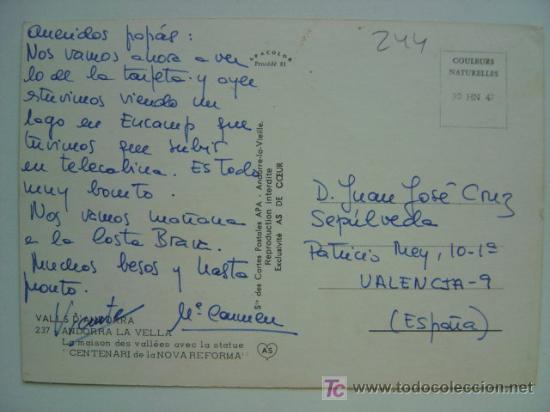 Queridos papás:
Nos vamos ahora a ver
lo de la tarjeta y ayer
estuvimos viendo un
lago en Encamp que
tuvimos que subir
en telecabina. Es todo
muy bonito.
Nos vamos mañana
a la Costa Brava.
Muchos besos y hasta
pronto.
Mª Carmen
VALLS D'ANDORRA
237 - ANDORRA LA VELLA
La maison des vallées avec la statue
"CENTENARI de la NOVA REFORMA"
Procédé 81
Sté des Cartes Postales APA - Andorre-la-Vieille.
Reproduction interdite
Exclusivité AS DE CŒUR
AS
244
COULEURS
NATURELLES
D. Juan José Cruz
Sepúlveda
Patricio Mey, 10-1ª
VALENCIA-9
(ESPAÑA)
TC todocoleccion
todocoleccion.net